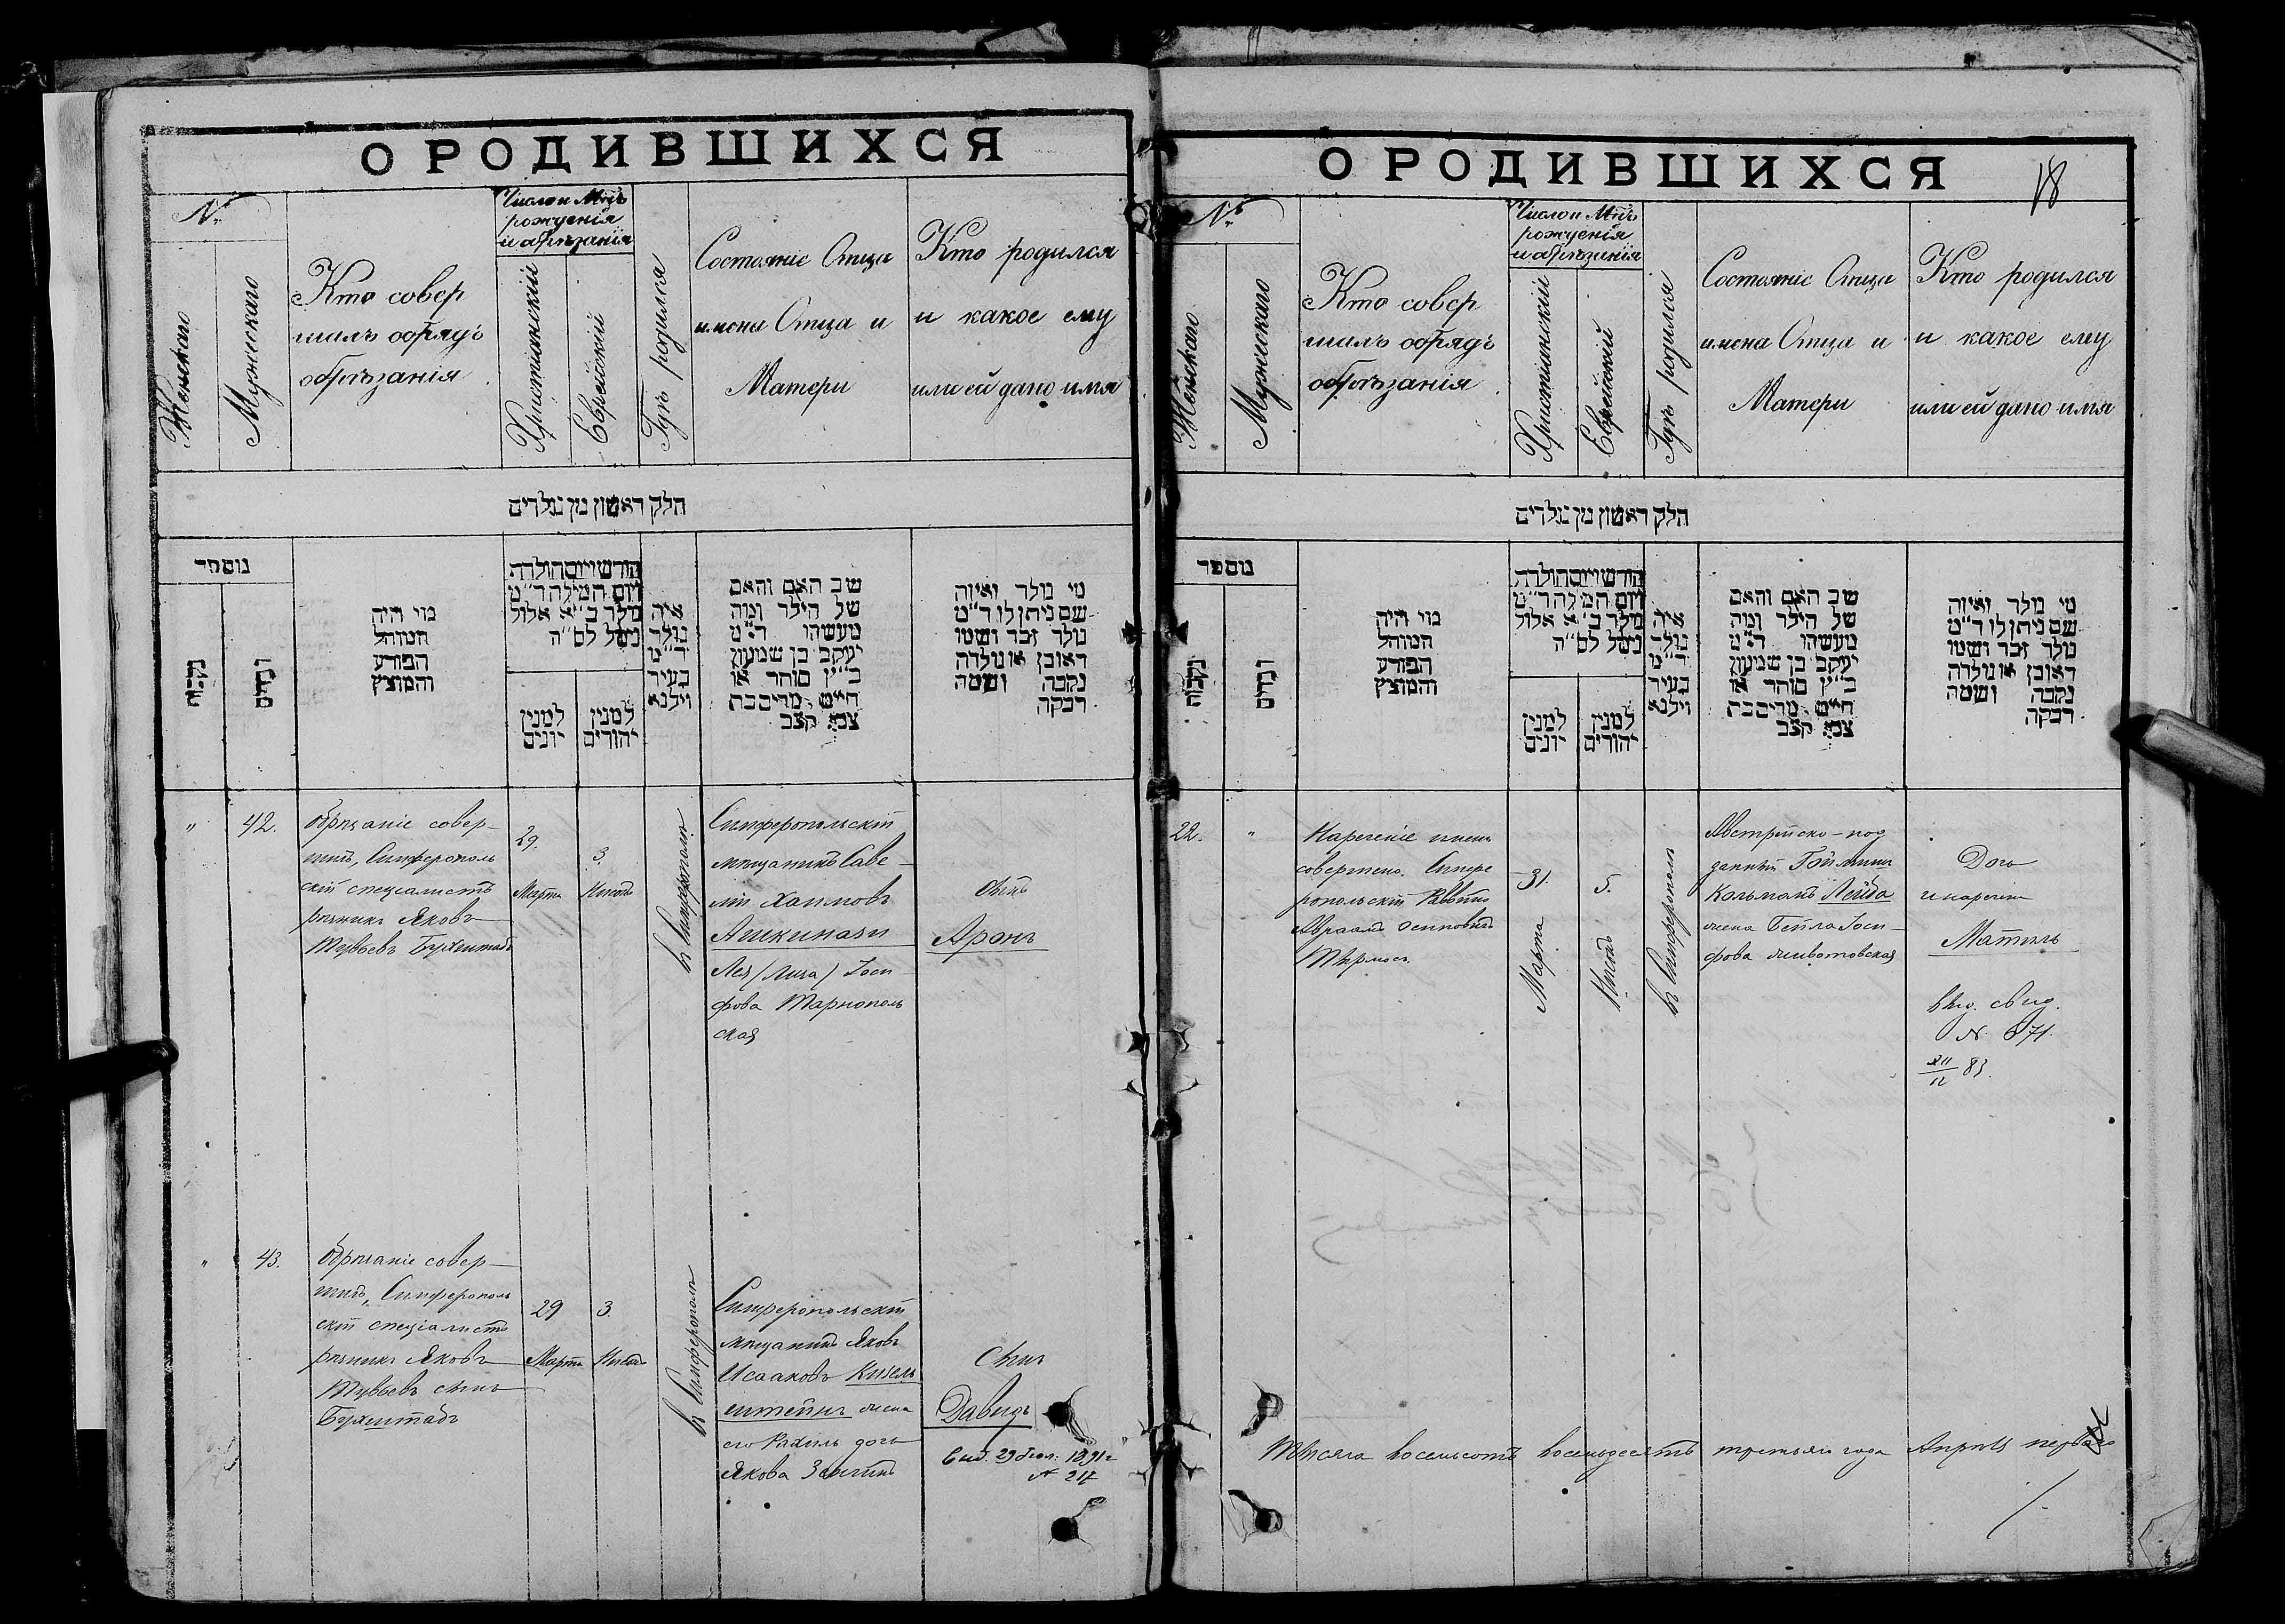 О РОДИВШИХСЯ
№
Женскаго
Мужескаго
Кто совер
шилъ обрядъ
обрѣзанія
Число и Мѣц.
рожденія
и обрѣзанія
Христіанскій
Еврейскій
Гдѣ родился
Состояніе Отца
имена Отца и
Матери
Кто родился
и какое ему
или ей дано имя
חלק ראשון מן נולדים
נומפר
נקבות
זכרים
מוי היה
המוהל
הפורע
והמוצץ
חודש ויום הולדת
ויום המילה ד״מ
נולד ב״א אלול
נימל לס״ה
למנין
יונים
למנין
יהודים
איה
נולד
ד״מ
בעיר
ווילנא
שב האם והאם
של הילד ומה
מעשהו ד״מ
יעקב בן שמעון
כ״ץ סוחר או
חייט מרים בת
צבי קצב
מי נולד ואיזה
שם ניתן לו ד״מ
נולד זכר ושמו
ראובן או נולדה
נקבה ושמה
רבקה
" 42.
Обрѣзаніе совер-
шилъ, Симферополь
скій спеціалистъ
рѣзникъ Яковъ
Тувьевъ Бухштабъ
29.
Марта
3.
Нисонъ
въ Симферополѣ
Симферопольскій
мѣщанинъ Саве-
лій Хаимовъ
Ашкинази
Лея (Лиза) Іоси-
фова Тарнополь
ская
Сынъ
Аронъ
" 43.
Обрѣзаніе совер-
шилъ, Симферополь
скій спеціалистъ
рѣзникъ Яковъ
Тувьевъ сынъ
Бухштабъ
29
Марта
3.
Нисонъ
въ Симферополѣ
Симферопольскій
мѣщанинъ Яковъ
Исааковъ Кизель
штейнъ жена
его Рахиль дочь
Якова
Сынъ
Давидъ
1891 г
№ 217
О РОДИВШИХСЯ
18
№
Женскаго
Мужескаго
Кто совер
шилъ обрядъ
обрѣзанія
Число и Мѣц.
рожденія
и обрѣзанія
Христіанскій
Еврейскій
Гдѣ родился
Состояніе Отца
имена Отца и
Матери
Кто родился
и какое ему
или ей дано имя
חלק ראשון מן נולדים
נומפר
נקבות
זכרים
מוי היה
המוהל
הפורע
והמוצץ
חודש ויום הולדת
ויום המילה ד״מ
נולד ב״א אלול
נימל לס״ה
למנין
יונים
למנין
יהודים
איה
נולד
ד״מ
בעיר
ווילנא
שב האם והאם
של הילד ומה
מעשהו ד״מ
יעקב בן שמעון
כ״ץ סוחר או
חייט מרים בת
צבי קצב
מי נולד ואיזה
שם ניתן לו ד״מ
נולד זכר ושמו
ראובן או נולדה
נקבה ושמה
רבקה
22. "
Нареченіе имени
совершено. Симфе
ропольскій Раввинъ
Авраамъ Осиповичъ
31.
Марта
5.
Нисонъ
въ Симферополѣ
Австрійско-под
данный
Кольманъ Лейба
жена Бейла Іоси-
фова Животовская
Дочь
и наречена
Матиль
выд. свид.
№ 571.
XII
12 83.
Тысяча восемьсотъ восемьдесятъ третьяго года Апрѣля перваго